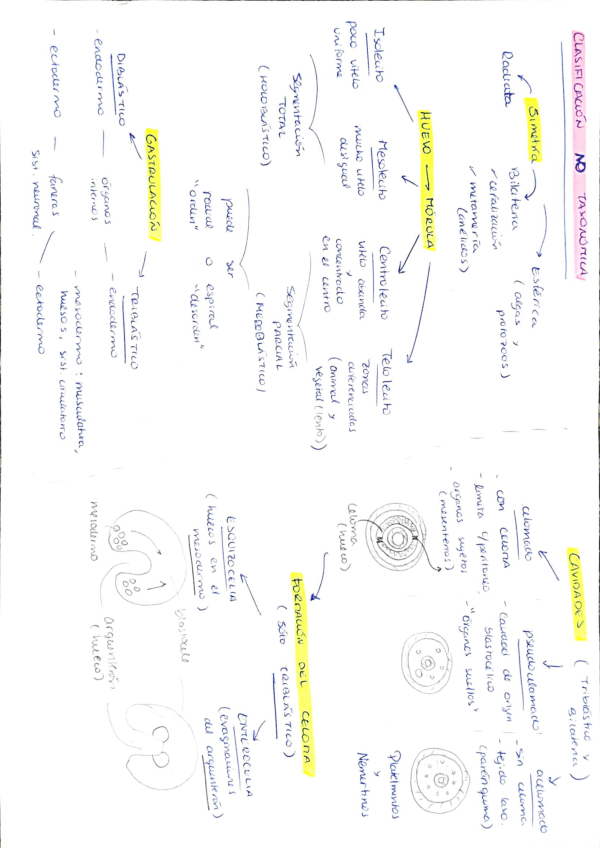 CLASIFICACIÓN NO TAXONÓMICA
Simetría
Radiata
Bilateria
✓ cefalización
✓ metamería
(anélidos)
Esférica
(algas y
protozoos)
HUEVO → MÓRULA
Isolecito
poco vitelo
uniforme
Mesolecito
mucho vitelo
desigual
Centrolecito
vitelo abunda y
concentrado
en el centro
Telolecito
zonas
diferenciadas
(animal y
vegetal (lento))
Segmentación
TOTAL
(HOLOBLÁSTICO)
Segmentación
PARCIAL
(MEROBLÁSTICO)
puede ser
radial o espiral
"orden" "desorden"
GASTRULACIÓN
DIBLÁSTICO
- endodermo — órganos
internos
- ectodermo — faneras
sist. neuronal.
TRIBLÁSTICO
- endodermo
- mesodermo: musculatura,
huesos, sist. circulatorio
- ectodermo
CAVIDADES (Triblástico y
Bilateria)
celomado
- con celoma
- limita y/peritoneo
- órganos sujetos
(mesenterios)
celoma
(hueco)
pseudocelomado
- cavidad de origen
blastocélico
- "órganos sueltos"
acelomado
- sin celoma
- tejido laxo.
(parénquima)
Platelmintos
y
Nemertinos
FORMACIÓN DEL CELOMA
(sólo TRIBLÁSTICO)
ESQUIZOCELIA
(huecos en el
mesodermo)
ENTEROCELIA
(evaginaciones
del arquenterón)
blastocele
mesodermo
arquenterón
(hueco)